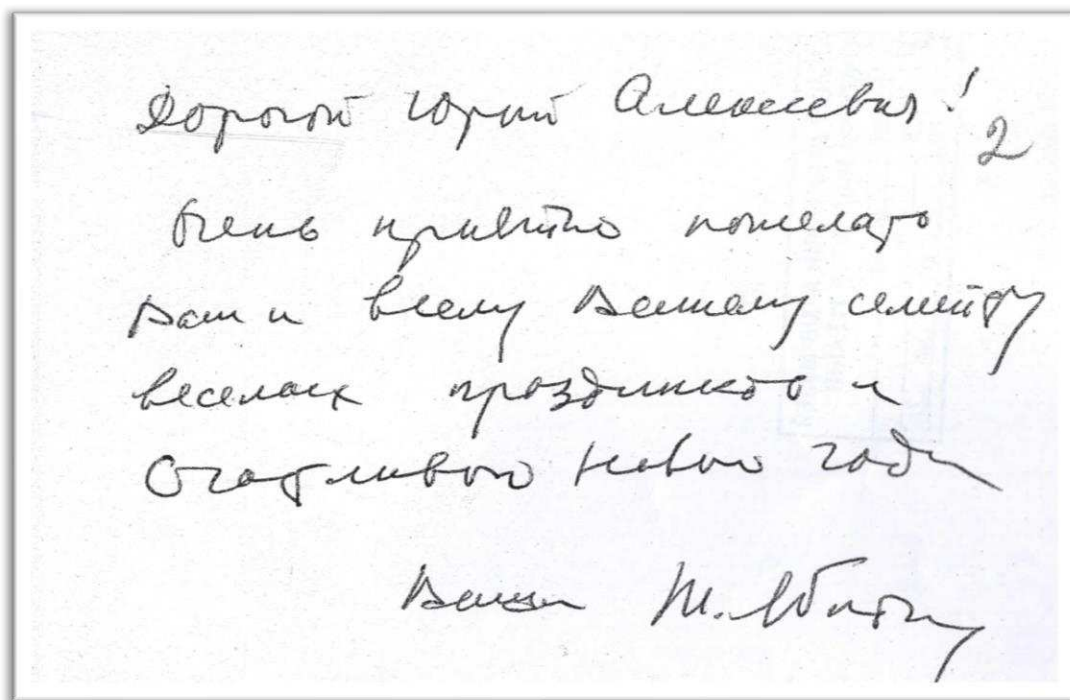 Дорогой Юрий Алексеевич!
2
Очень приятно пожелать
Вам и всему Вашему семейству
веселых праздников и
Счастливого Нового года
Ваш